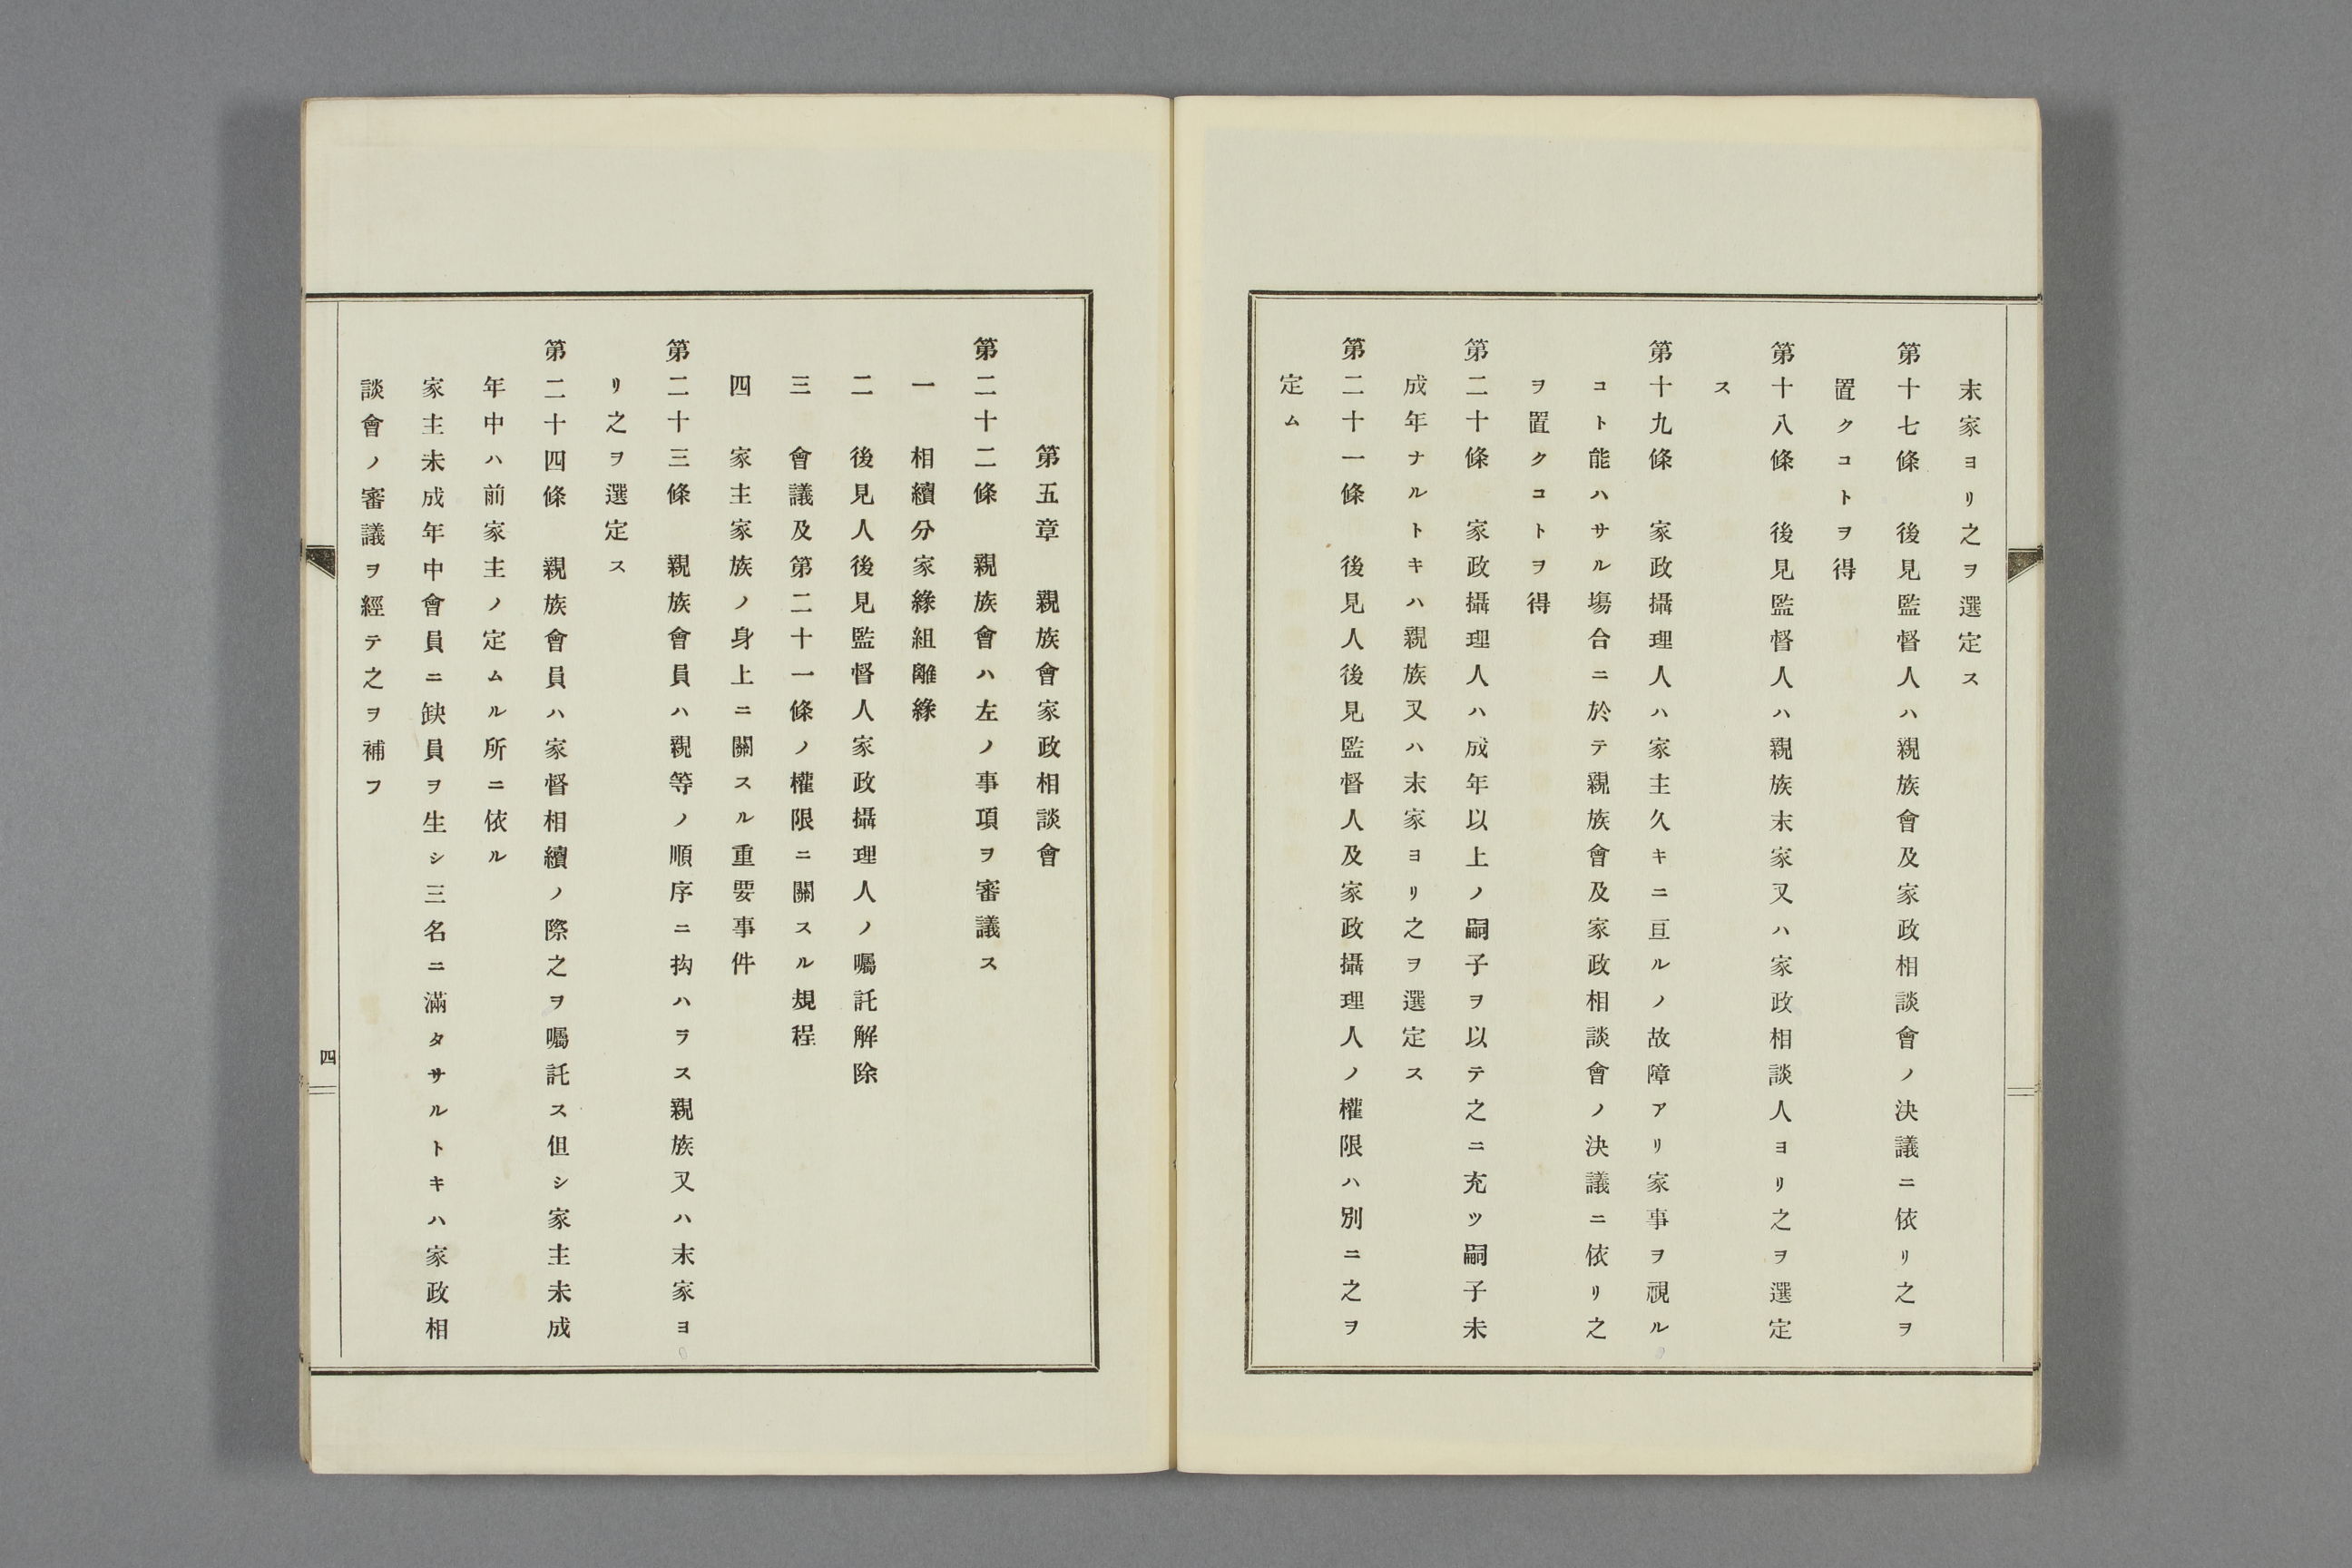 末家ヨリ之ヲ選定ス
第十七條　後見監督人ハ親族會及家政相談會ノ決議ニ依リ之ヲ
置クコトヲ得
第十八條　後見監督人ハ親族末家又ハ家政相談人ヨリ之ヲ選定
ス
第十九條　家政攝理人ハ家主久キニ亘ルノ故障アリ家事ヲ視ル
コト能ハサル塲合ニ於テ親族會及家政相談會ノ決議ニ依リ之
ヲ置クコトヲ得
第二十條　家政攝理人ハ成年以上ノ嗣子ヲ以テ之ニ充ツ嗣子未
成年ナルトキハ親族又ハ末家ヨリ之ヲ選定ス
第二十一條　後見人後見監督人及家政攝理人ノ權限ハ別ニ之ヲ
定ム
第五章　親族會家政相談會
第二十二條　親族會ハ左ノ事項ヲ審議ス
一　相續分家緣組離緣
二　後見人後見監督人家政攝理人ノ囑託解除
三　會議及第二十一條ノ權限ニ關スル規程
四　家主家族ノ身上ニ關スル重要事件
第二十三條　親族會員ハ親等ノ順序ニ拘ハラス親族又ハ末家ヨ
リ之ヲ選定ス
第二十四條　親族會員ハ家督相續ノ際之ヲ囑託ス但シ家主未成
年中ハ前家主ノ定ムル所ニ依ル
家主未成年中會員ニ缺員ヲ生シ三名ニ滿タサルトキハ家政相
談會ノ審議ヲ經テ之ヲ補フ
四